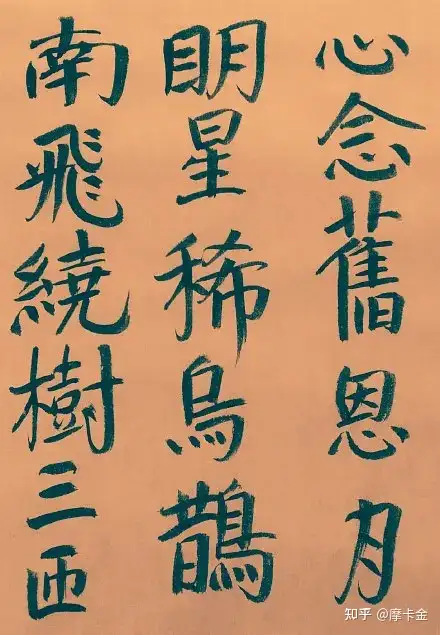 心念舊恩月
眀星稀烏鵲
南飛繞樹三匝
知乎 @摩卡金